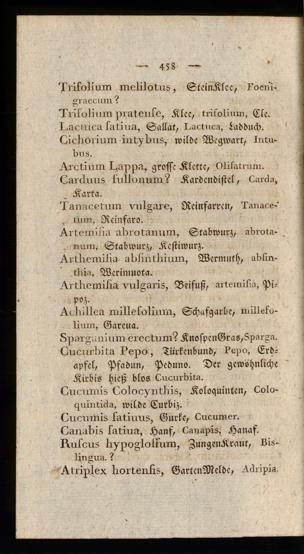 — 458 —
Trifolium melilotus, SteinKlee, Foeni-
graecum?
Trifolium pratense, Klee, trifolium, Cle.
Lactuca satiua, Sallat, Lactuca, Ladduch.
Cichorium intybus, wilde Wegwart, Intu-
bus.
Arctium Lappa, grosse Klette, Olisatrum.
Carduus fullonum? Kardendistel, Carda,
Karta.
Tanacetum vulgare, Reinfarren, Tanace-
tum, Reinfaro.
Artemisia abrotanum, Stabwurz, abrota-
num, Stabwurz, Kestiwurz.
Arthemisia absinthium, Wermuth, absin-
thia, Werimuota.
Arthemisia vulgaris, Beifuß, artemisia, Pi-
poz.
Achillea millefolium, Schafgarbe, millefo-
lium, Gareua.
Sparganium erectum? KnospenGras, Sparga.
Cucurbita Pepo, Türkenbund, Pepo, Erd-
apfel, Pfadun, Peduno. Der gewöhnliche
Kirbis hieß blos Cucurbita.
Cucumis Colocynthis, Koloquinten, Colo-
quintida, wilde Curbiz.
Cucumis satiuus, Gurke, Cucumer.
Canabis satiua, Hanf, Canapis, Hanaf.
Ruscus hypoglossum, ZungenKraut, Bis-
lingua.?
Atriplex hortensis, GartenMelde, Adripia.